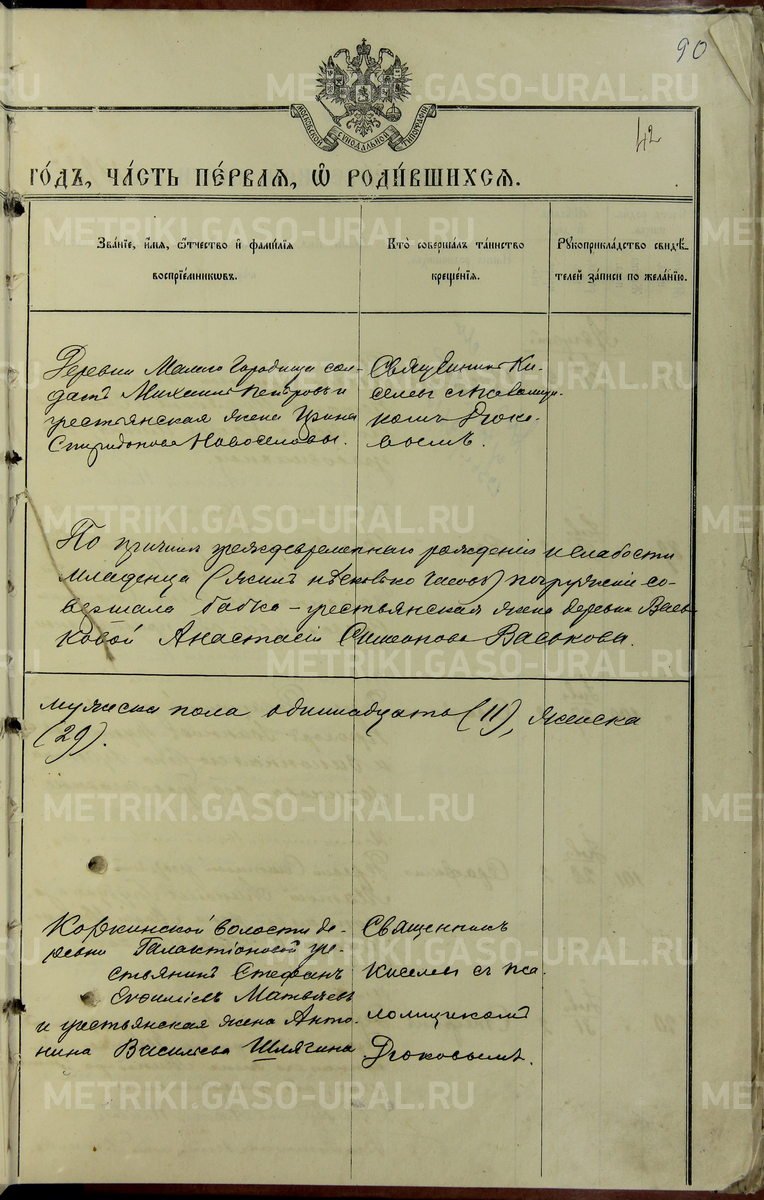 90
МОСКОВСКОЙ СѴНОДАЛЬНОЙ ТИПОГРАФІИ
42
ГО́ДЪ, ЧА́СТЬ ПЕ́РВАЯ, Ѽ РОДИ́ВШИХСЯ.
Зва́нїе, и́мя, ѻ҆́тчество и҆ фами́лїя
воспрїе́мникѡвъ.
Кто̀ соверша́лъ та́инство
креще́нїя.
Рꙋкоприкла́дство свидѣ́-
телей за́писи по жела́нїю.
Деревни Малаго Городища сол-
датъ Михаилъ Петровъ и
крестьянская жена Ирина
Спиридонова Новоселовы.
Священникъ Ки-
селевъ съ псаломщи-
комъ Дюко-
вымъ.
По причинѣ преждевременнаго рожденія и слабости
младенца (жилъ нѣсколько часовъ) погруженіе со-
вершала бабка – крестьянская жена деревни Вась-
ковой Анастасія Симеонова Васькова.
мужеска пола одиннадцать (11), женска
(29).
Коркинской волости де-
ревни Галактіоновой кре-
стьянинъ Стефанъ
Евфиміевъ Матвѣевъ
и крестьянская жена Анто-
нина Василіева Шлягина
Священникъ
Киселевъ съ пса-
ломщикомъ
Дюковымъ.
METRIKI.GASO-URAL.RU